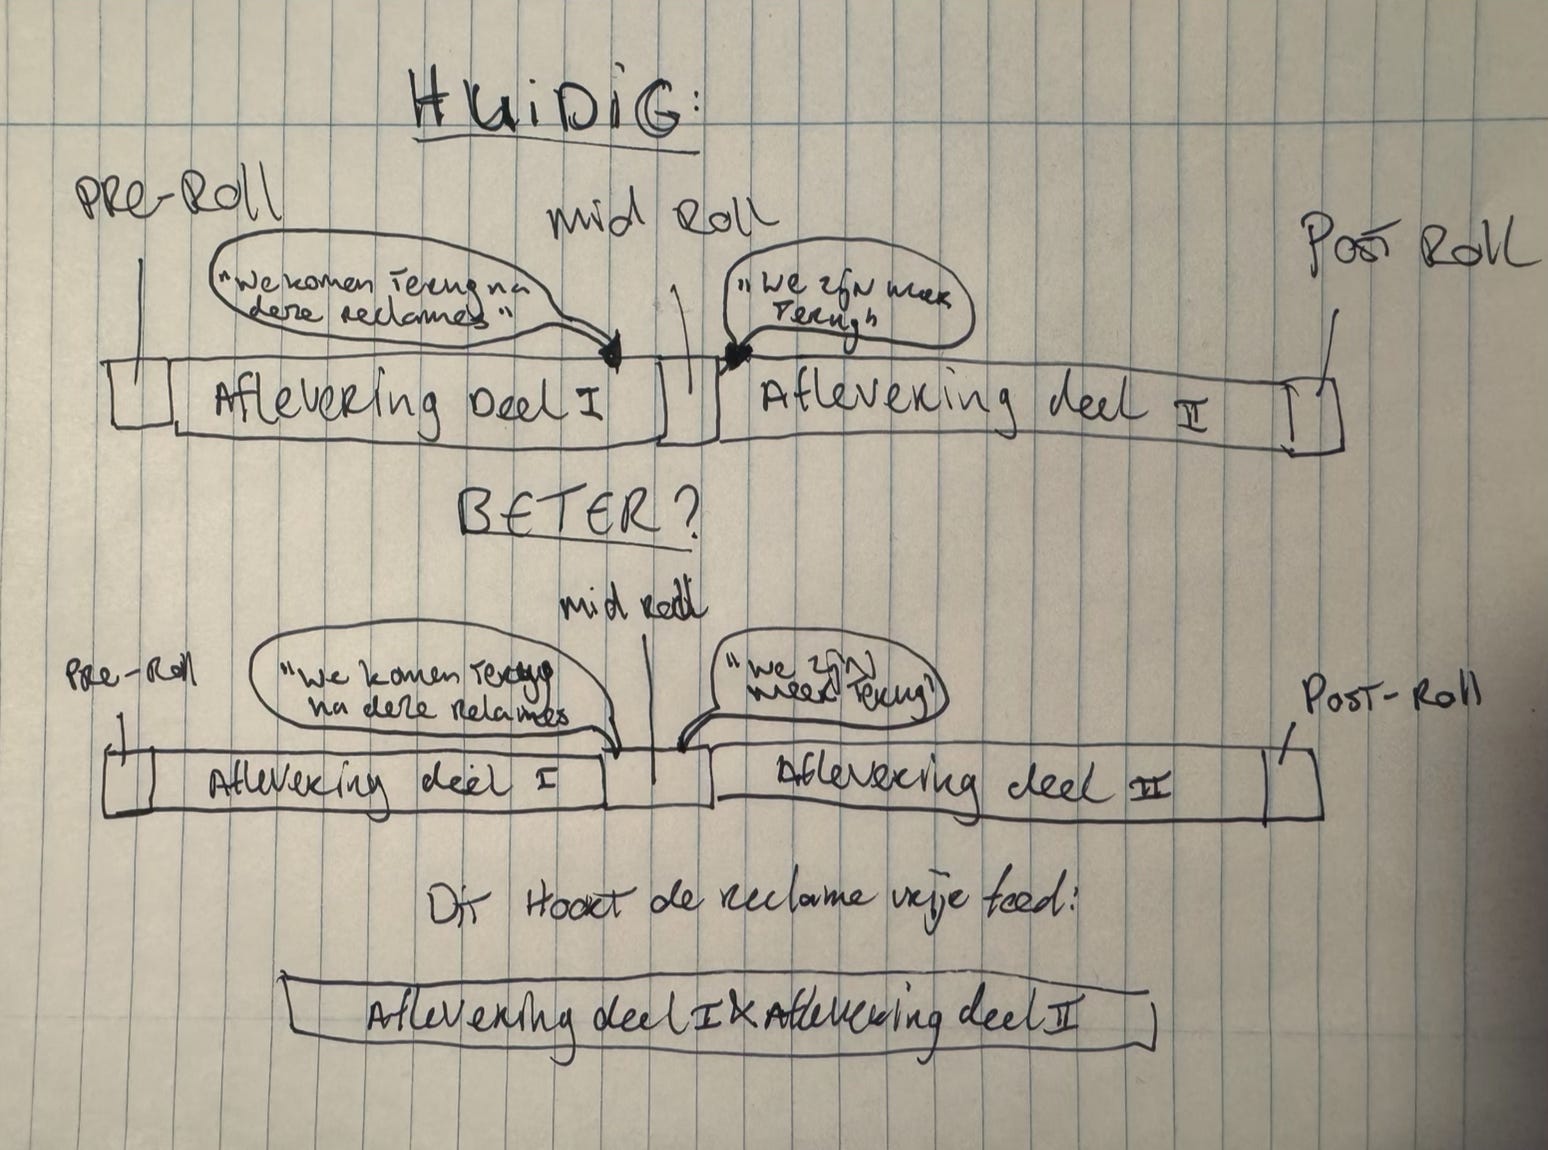 HUiDiG:
PRE-Roll
mid Roll
Post Roll
"We komen Terug na
deze reclames"
"We zijn weer
Terug"
Aflevering Deel I
Aflevering deel II
BETER?
mid Roll
PRE-Roll
"We komen Terug
na deze relames
"We zijn
weer Terug"
Post-Roll
Aflevering deel I
Aflevering deel II
Dit Hoort de reclame vrije feed:
Aflevering deel I X Aflevering deel II